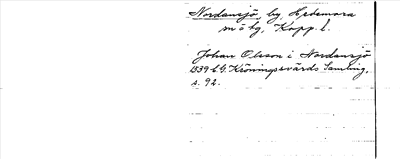 Nordansjö, by, Hedemora
m o kg, Kopp. l.
Johan Olsson i Nordansjö
1539 C.G. Kröningssvärds Samling,
s. 92.